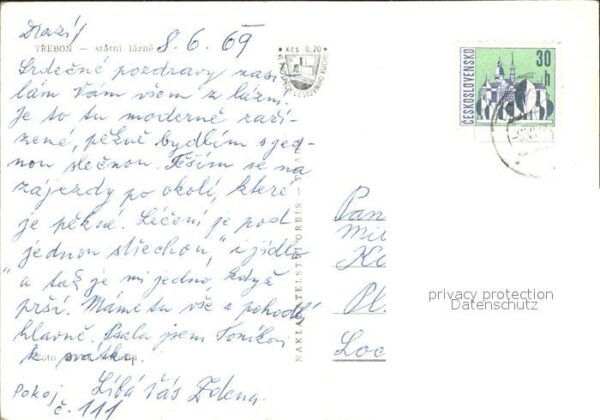 Drazí!
8.6.69
TŘEBOŇ — státní lázně
Kčs 0,20
Srdečné pozdravy zasí
lám Vám všem z lázní.
Je to tu moderně zaří
zené, pěkně bydlím s jed
nou slečnou. Těším se na
zájezdy po okolí, které
je pěkné. Léčení je pod
„jednou střechou," i jídlo
a tak je mi jedno, když
prší. Máme tu vše a pohodlí
hlavně. Psala jsem Toníkovi
k svátku.
Líbá Vás Zdena.
Pokoj
č. 111
NAKLADATELSTVÍ ORBIS
ČESKOSLOVENSKO
30
h
Pan
Mil
Pl
Loc
privacy protection
Datenschutz